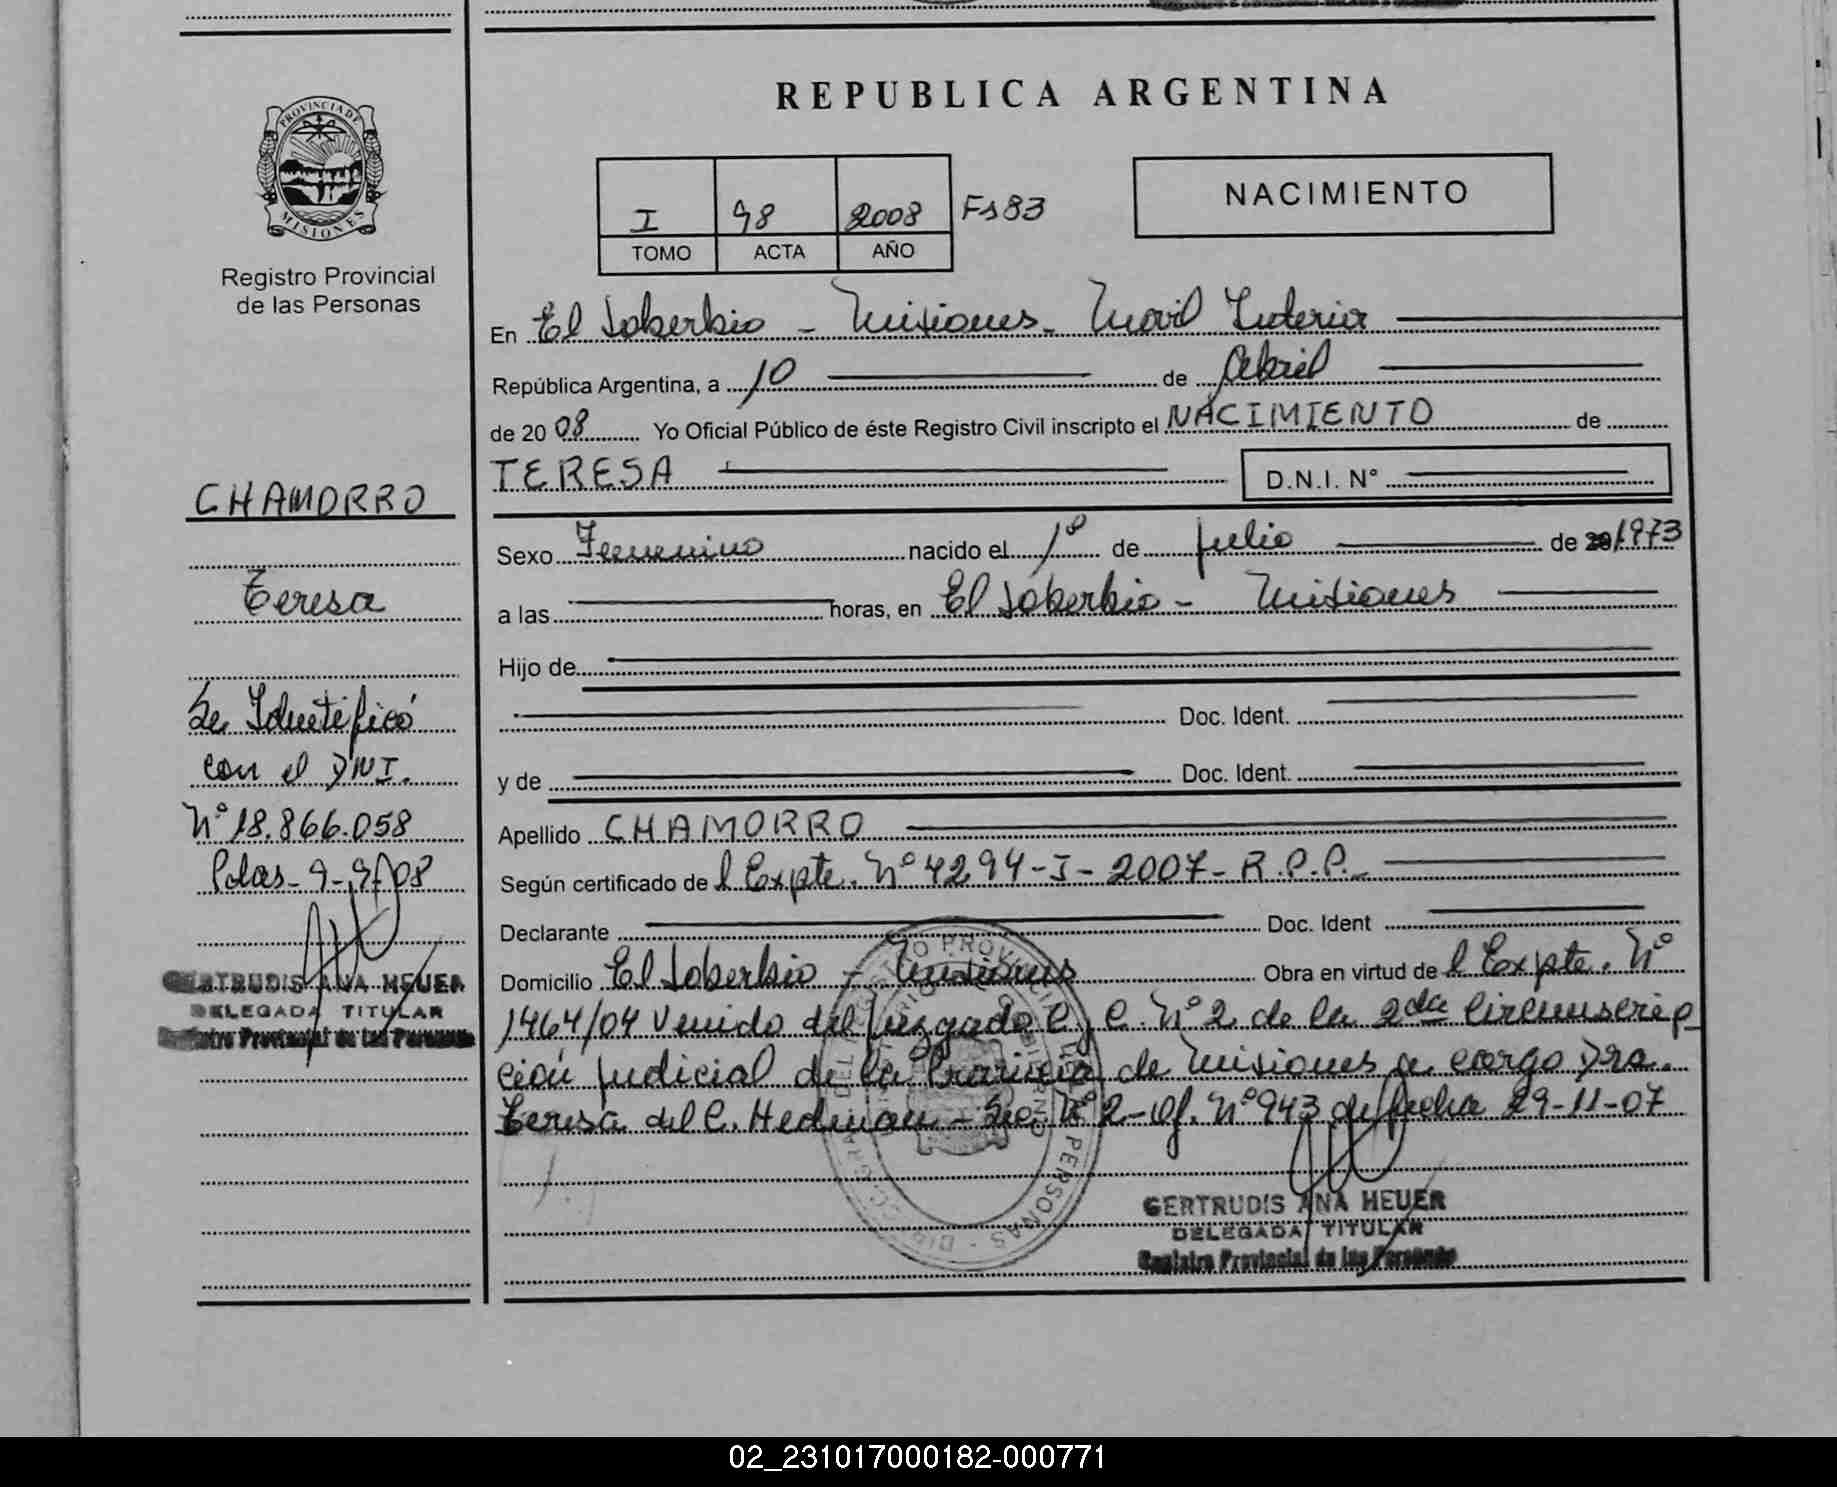 PROVINCIA DE
MISIONES
Registro Provincial
de las Personas
CHAMORRO
Teresa
Se Identificó
con el DNI.
Nº 18.866.058
Pdas-9-9-08
GERTRUDIS ANA HEUER
DELEGADA TITULAR
Registro Provincial de las Personas
REPUBLICA ARGENTINA
I 98 2008 Fs83
TOMO ACTA AÑO
NACIMIENTO
En El Soberbio - Misiones - Movil Interior
República Argentina, a 10 de Abril
de 20 08 Yo Oficial Público de éste Registro Civil inscripto el NACIMIENTO de
TERESA D.N.I. Nº
Sexo Femenino nacido el 1º de Julio de 1973
a las horas, en El Soberbio - Misiones
Hijo de
Doc. Ident.
y de Doc. Ident.
Apellido CHAMORRO
Según certificado de l Expte. Nº 4294-I-2007-R.P.P.-
Declarante Doc. Ident
Domicilio El Soberbio - Misiones Obra en virtud de l Expte. Nº
1464/04 Venido del Juzgado C. y C. Nº 2 de la 2da Circunscrip
ción Judicial de la Provincia de Misiones a cargo Dra.
Teresa del C. Hedman - Sec. Nº 2 - Of. Nº 943 de fecha 29-11-07
GERTRUDIS ANA HEUER
DELEGADA TITULAR
Registro Provincial de las Personas
02_231017000182-000771